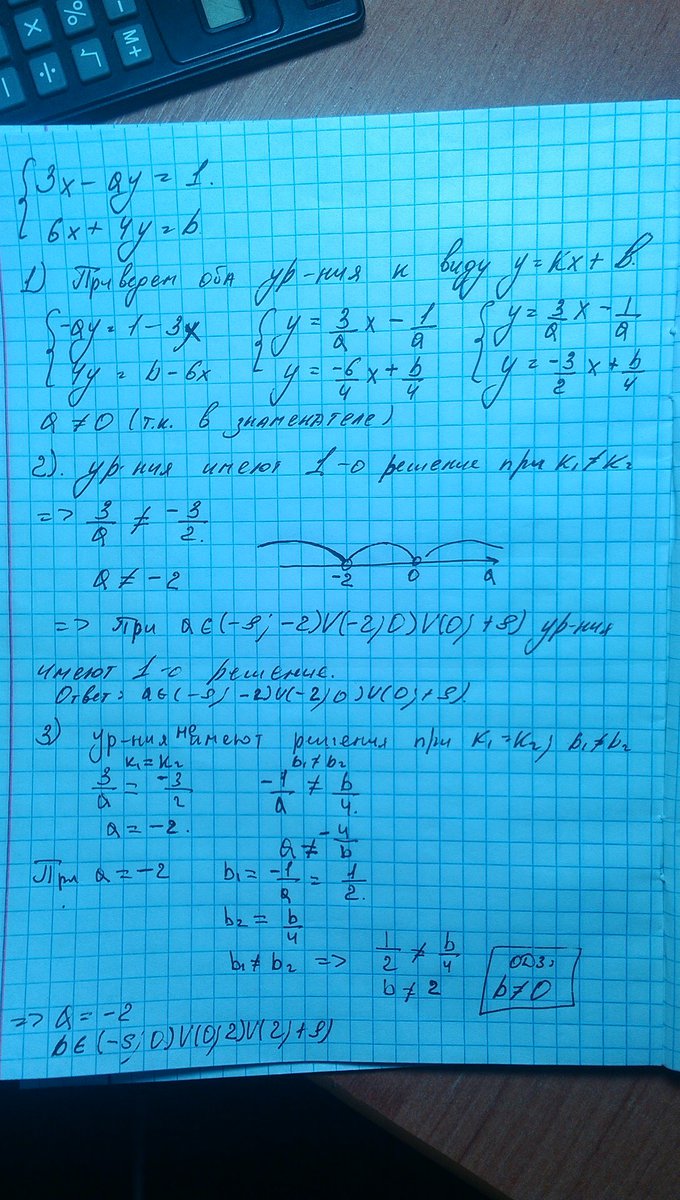 % −
X M+
÷ √
−
{ 3x − ay = 1.
6x + 4y = b
1) Приведем оба ур-ния к виду y = kx + b.
{ -ay = 1 − 3x { y = 3/a x − 1/a { y = 3/a x − 1/a
4y = b − 6x y = -6/4 x + b/4 y = -3/2 x + b/4
a ≠ 0 (т.к. в знаменателе)
2). ур-ния имеют 1-о решение при k₁ ≠ k₂
=> 3/a ≠ -3/2.
a ≠ −2
-2 0 a
=> При a ∈ (-∞; -2) V (-2; 0) V (0; +∞) ур-ния
имеют 1-о решение.
Ответ: a ∈ (-∞; -2) V (-2; 0) V (0; +∞).
3) ур-ния не имеют решения при k₁ = k₂; b₁ ≠ b₂
k₁ = k₂ b₁ ≠ b₂
3/a = -3/2 -1/a ≠ b/4.
a = −2. a ≠ -4/b
При a = −2 b₁ = -1/a = 1/2.
b₂ = b/4
b₁ ≠ b₂ => 1/2 ≠ b/4
b ≠ 2
ОДЗ:
b ≠ 0
=> a = −2
b ∈ (-∞; 0) V (0; 2) V (2; +∞)